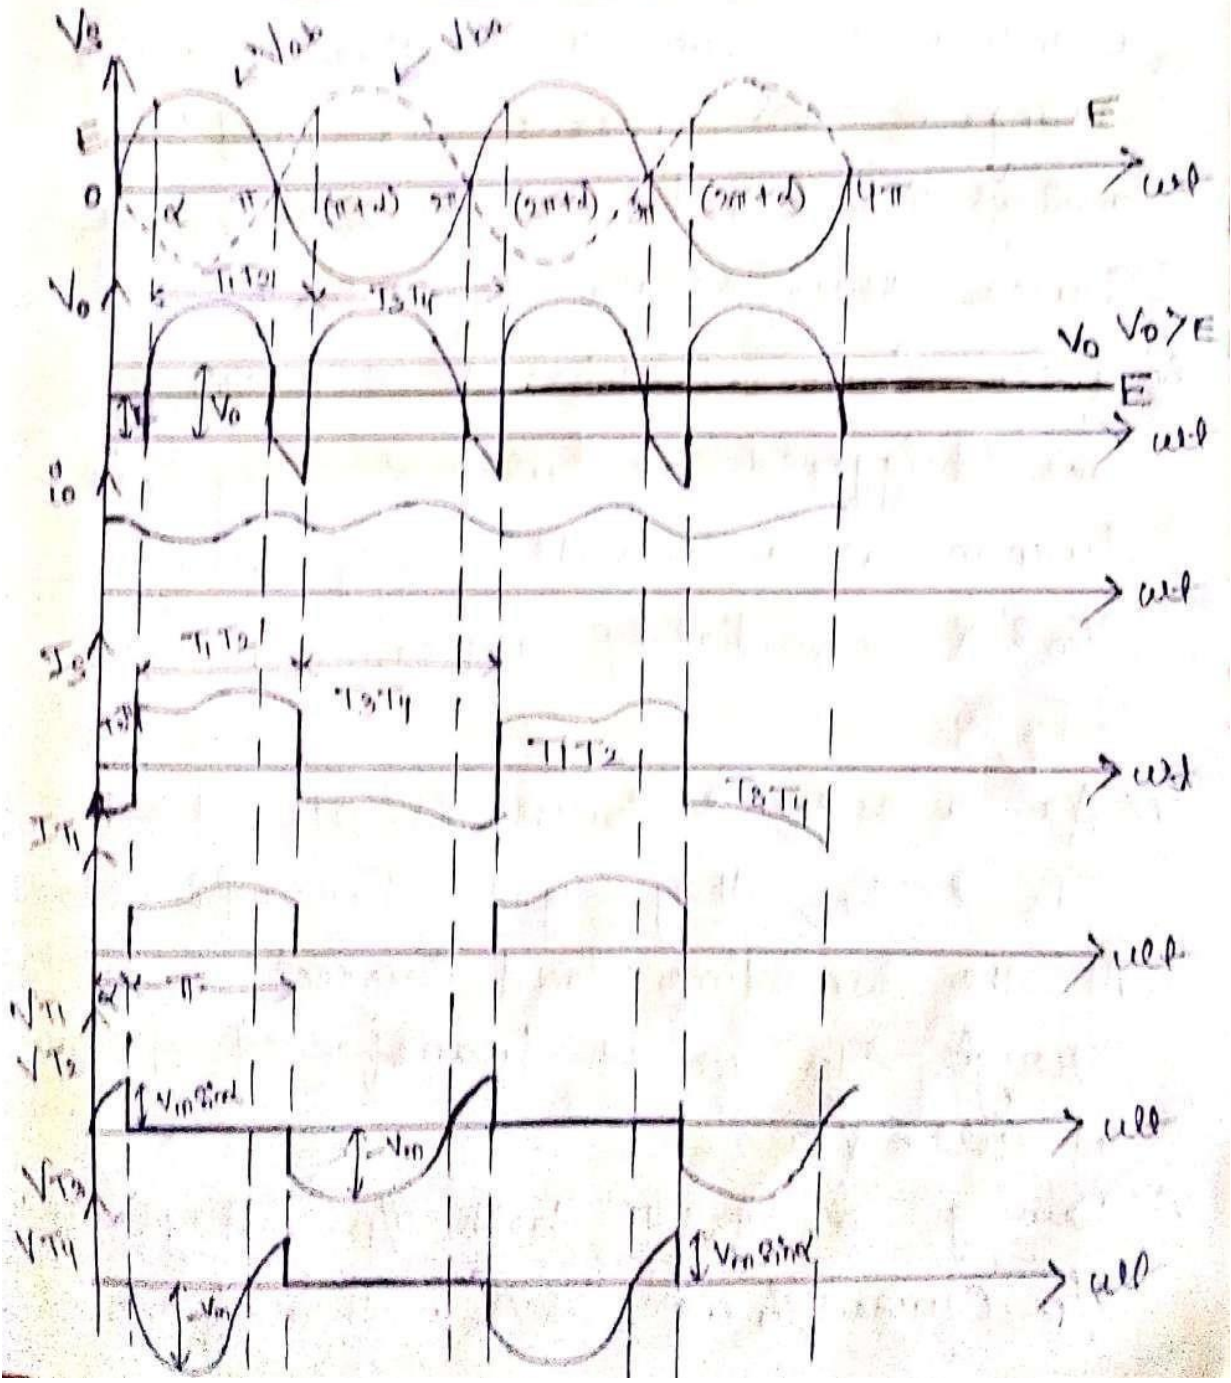 Vs Vab Vba
E E
0 α π (π+α) 2π (2π+α) 3π (3π+α) 4π ωt
T1T2 T3T4
Vo
Vo Vo>E
Vo E
ωt
io
ωt
Is T1T2
T3T4
T1T2 ωt
T3T4
IT1
ωt
α π
VT1
VT2
Vm sinα ωt
-Vm
VT3
VT4 Vm sinα
-Vm ωt